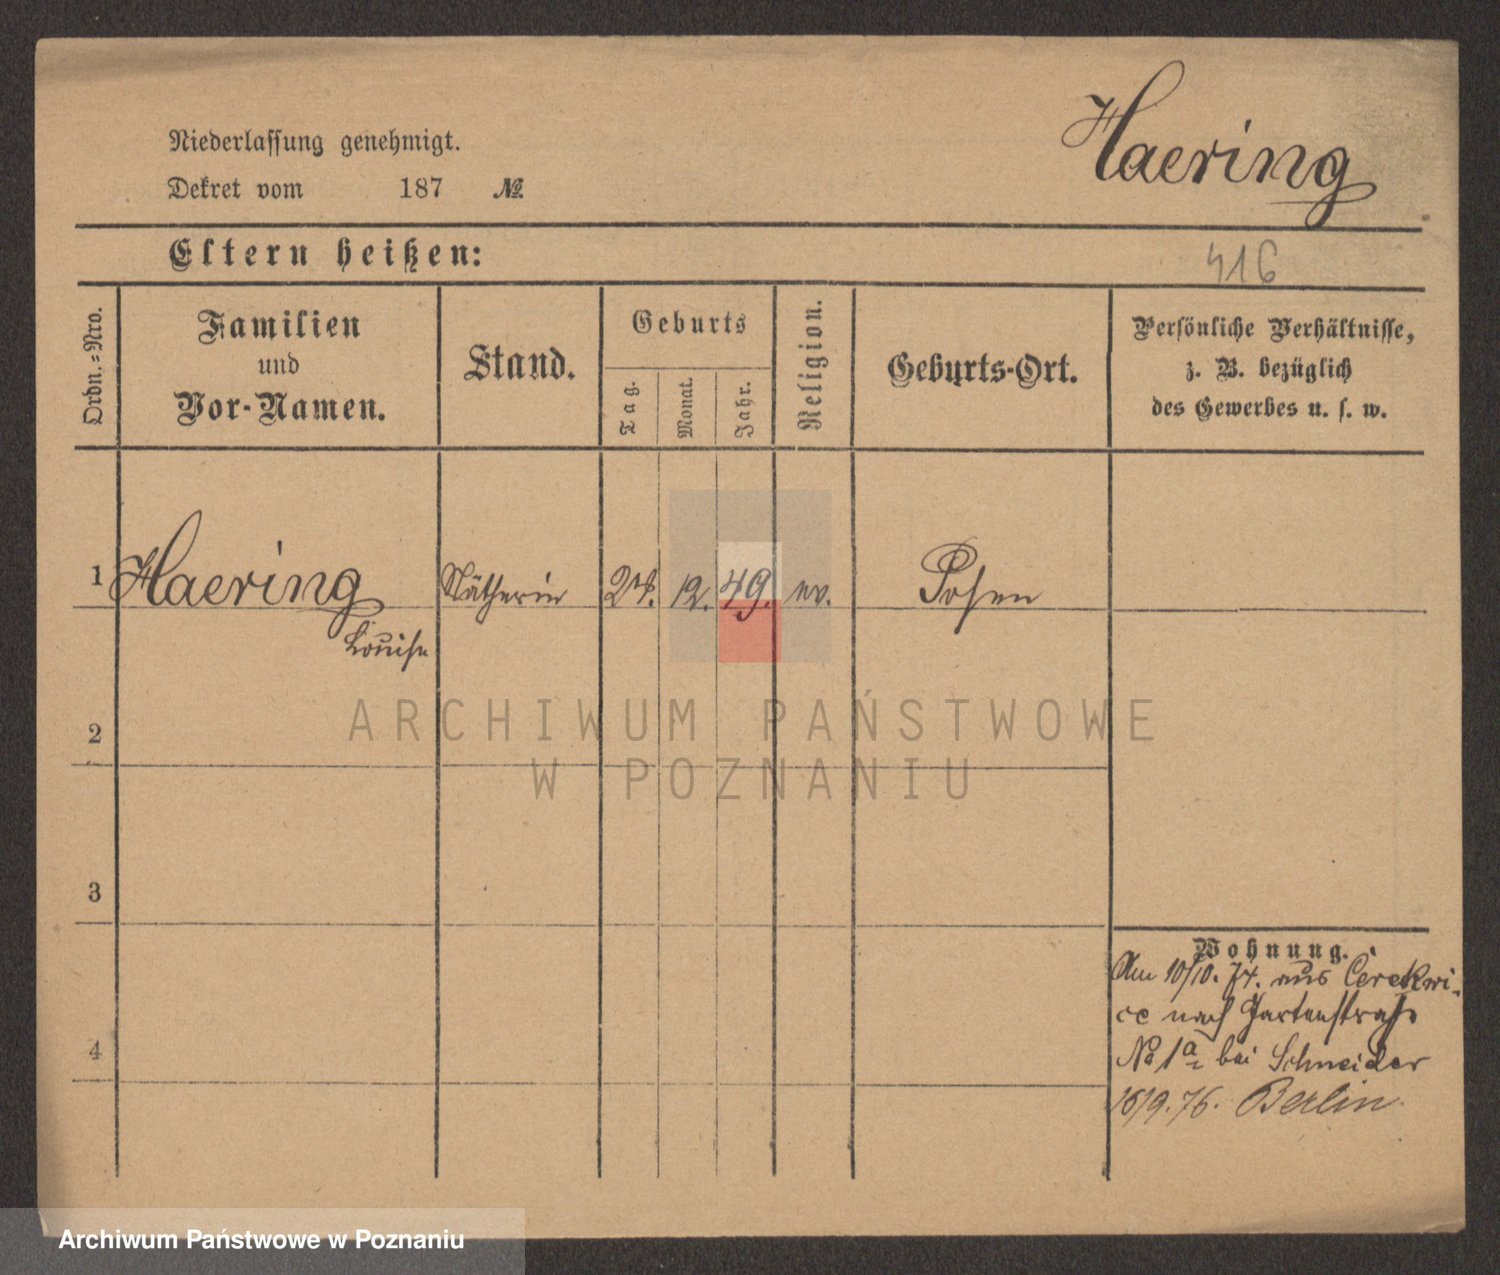 Haering
Niederlassung genehmigt.
Dekret vom 187 №
Eltern heißen:
416
Ordn.=Nro.
Familien
und
Vor-Namen.
Stand.
Geburts
Tag.
Monat.
Jahr.
Religion.
Geburts-Ort.
Persönliche Verhältnisse,
z. B. bezüglich
des Gewerbes u. s. w.
1 Haering Nätherin 24. 12. 49. ev. Posen
Louise
2
3
4
Wohnung.
Am 10/10. 74. aus Cerekwi-
ce nach Gartenstraße
No 1a bei Schneider
16/9. 76. Berlin
ARCHIWUM PAŃSTWOWE
W POZNANIU
Archiwum Państwowe w Poznaniu